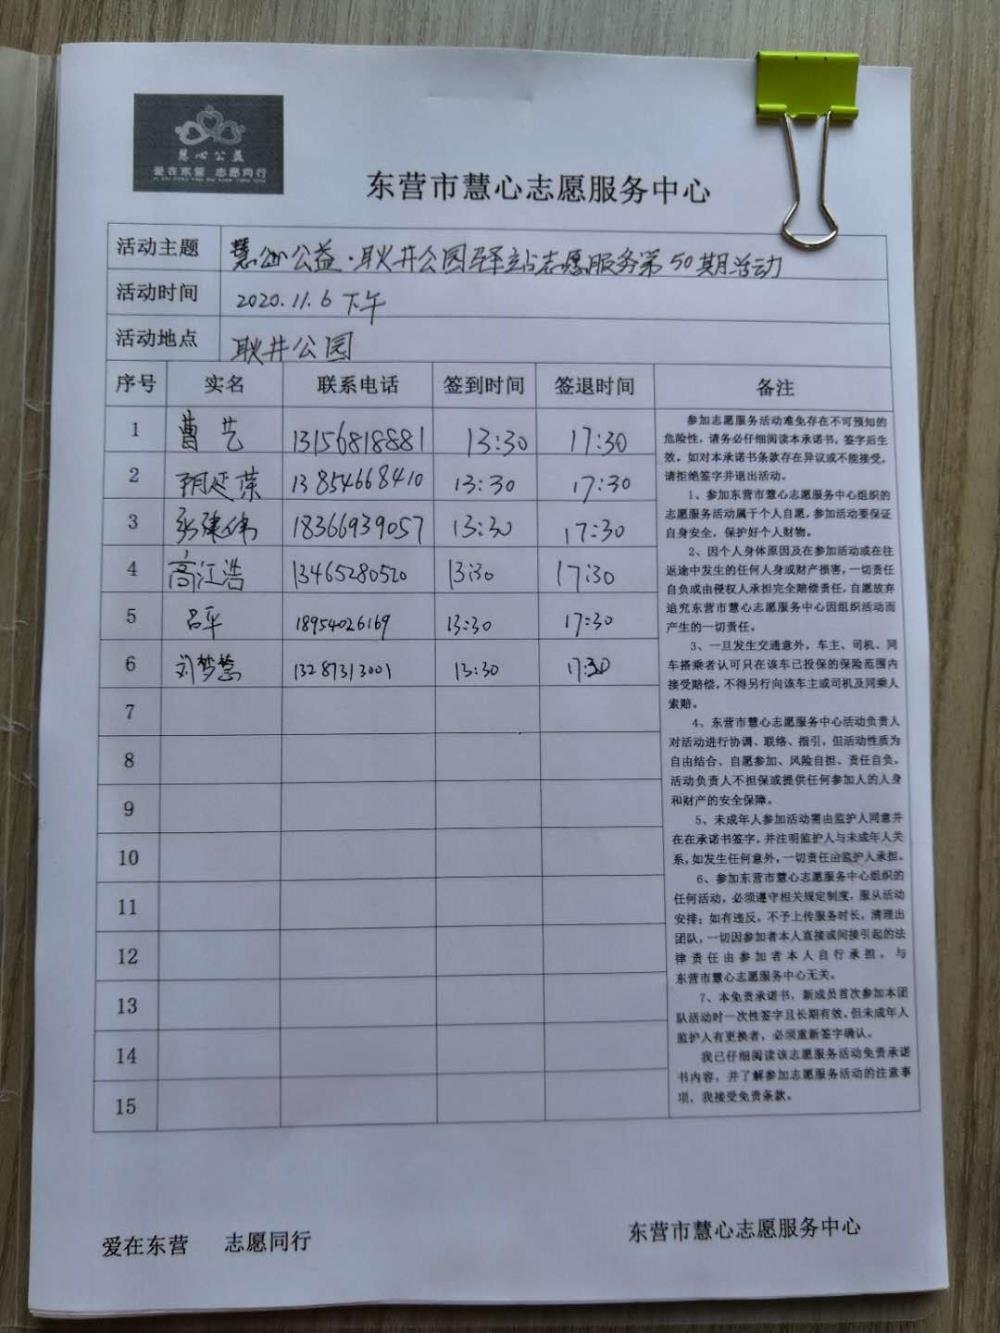 慧心公益
爱在东营 志愿同行
东营市慧心志愿服务中心
活动主题 慧心公益·耿井公园驿站志愿服务第50期活动
活动时间 2020.11.6 下午
活动地点 耿井公园
序号 实名 联系电话 签到时间 签退时间 备注
1 曹艺 13156818881 13:30 17:30
2 延荣 13854668410 13:30 17:30
3 张建伟 18366939057 13:30 17:30
4 高江浩 13465280520 13:30 17:30
5 吕平 18954026169 13:30 17:30
6 刘梦慧 13287313001 13:30 17:30
7
8
9
10
11
12
13
14
15
参加志愿服务活动难免存在不可预知的
危险性,请务必仔细阅读本承诺书,签字后生
效。如对本承诺书条款存在异议或不能接受,
请拒绝签字并退出活动。
1、参加东营市慧心志愿服务中心组织的
志愿服务活动属于个人自愿,参加活动要保证
自身安全,保护好个人财物。
2、因个人身体原因及在参加活动或在往
返途中发生的任何人身或财产损害,一切责任
自负或由侵权人承担完全赔偿责任,自愿放弃
追究东营市慧心志愿服务中心因组织活动而
产生的一切责任。
3、一旦发生交通意外,车主、司机、同
车搭乘者认可只在该车已投保的保险范围内
接受赔偿,不得另行向该车主或司机及同乘人
索赔。
4、东营市慧心志愿服务中心活动负责人
对活动进行协调、联络、指引,但活动性质为
自由结合、自愿参加、风险自担、责任自负。
活动负责人不担保或提供任何参加人的人身
和财产的安全保障。
5、未成年人参加活动需由监护人同意并
在在承诺书签字,并注明监护人与未成年人关
系,如发生任何意外,一切责任由监护人承担。
6、参加东营市慧心志愿服务中心组织的
任何活动,必须遵守相关规定制度,服从活动
安排;如有违反,不予上传服务时长,清理出
团队,一切因参加者本人直接或间接引起的法
律责任由参加者本人自行承担,与
东营市慧心志愿服务中心无关。
7、本免责承诺书,新成员首次参加本团
队活动时一次性签字且长期有效。但未成年人
监护人有更换者,必须重新签字确认。
我已仔细阅读该志愿服务活动免责承诺
书内容,并了解参加志愿服务活动的注意事
项,我接受免责条款。
爱在东营 志愿同行 东营市慧心志愿服务中心